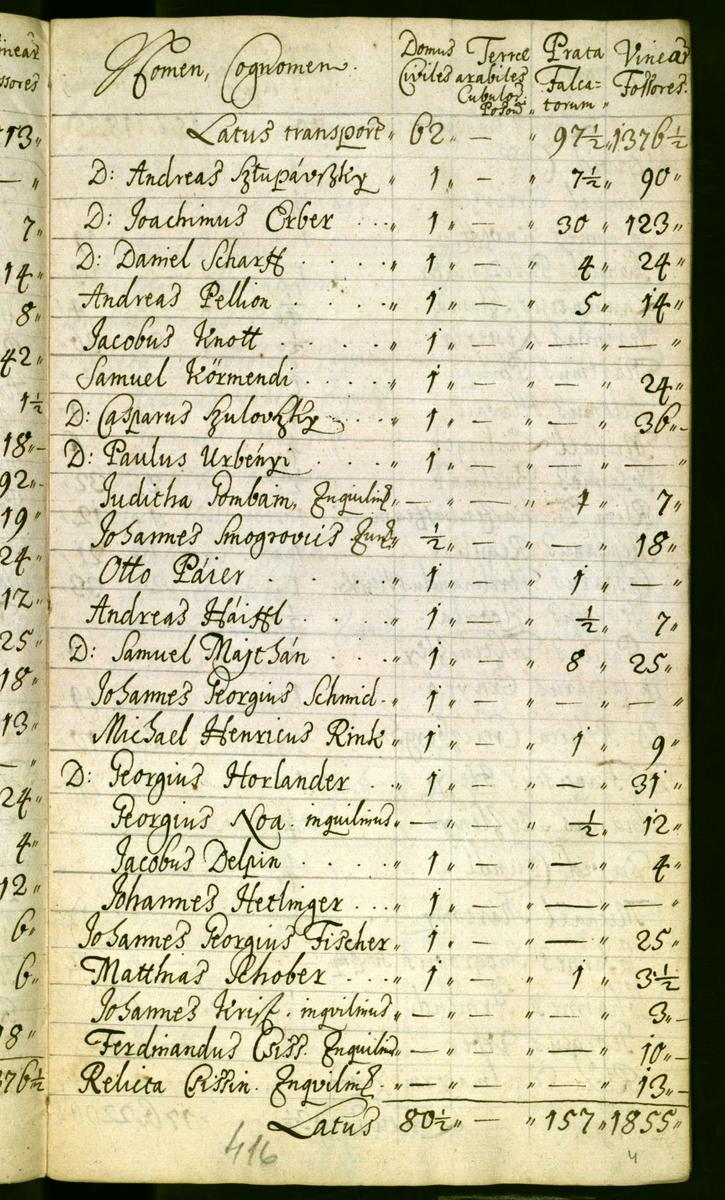 inear
ssores
13"
— "
7"
14"
8"
42"
1½
18"
92"
19"
24"
12"
25"
18"
13"
— "
24"
4"
12"
6"
6"
18"
376½
Nomen, Cognomen. Domus Civiles Terre arabiles Cubulor: Poson: Prata Falca= torum Vinear Fossores
Latus transport" 62" — " 97½" 1376½
D: Andreas Sztupávszky " 1" — " 7½" 90"
D: Joachimus Erber . . . " 1" — " 30" 123"
D: Daniel Scharff . . . . " 1" — " 4" 24"
Andreas Pellion . . . . " 1" — " 5" 14"
Jacobus Knott . . . . " 1" — " — " — "
Samuel Körmendi . . . . " 1" — " — " 24"
D: Casparus Szulovszky . . " 1" — " — " 36"
D: Paulus Urbényi . . . " 1" — " — " — "
Juditha Inquilin " — " — " 1" 7"
Johannes Smogrovits " ½" — " — " 18"
Otto Páier . . . . . " 1" — " 1" — "
Andreas Háiffl . . . . " 1" — " ½" 7"
D: Samuel Majthán . . . " 1" — " 8" 25"
Johannes Georgius Schmid " 1" — " — " — "
Michael Henricus Rink " 1" — " 1" 9"
D: Georgius Horlander . . " 1" — " — " 31"
Georgius Noa. inquilinus " — " — " ½" 12"
Jacobus Delpin . . . " 1" — " — " 4"
Johannes Hetlinger . . . " 1" — " — " — "
Johannes Georgius Fischer " 1" — " — " 25"
Matthias Schober . . . " 1" — " 1" 3½
Johannes Krist. inqvilinus " — " — " — " 3"
Ferdinandus Csiss. Inquilin " — " — " — " 10"
Relicta Csissin. Inqvilin " — " — " — " 13"
Latus 80½" — " 157" 1855"
416
4